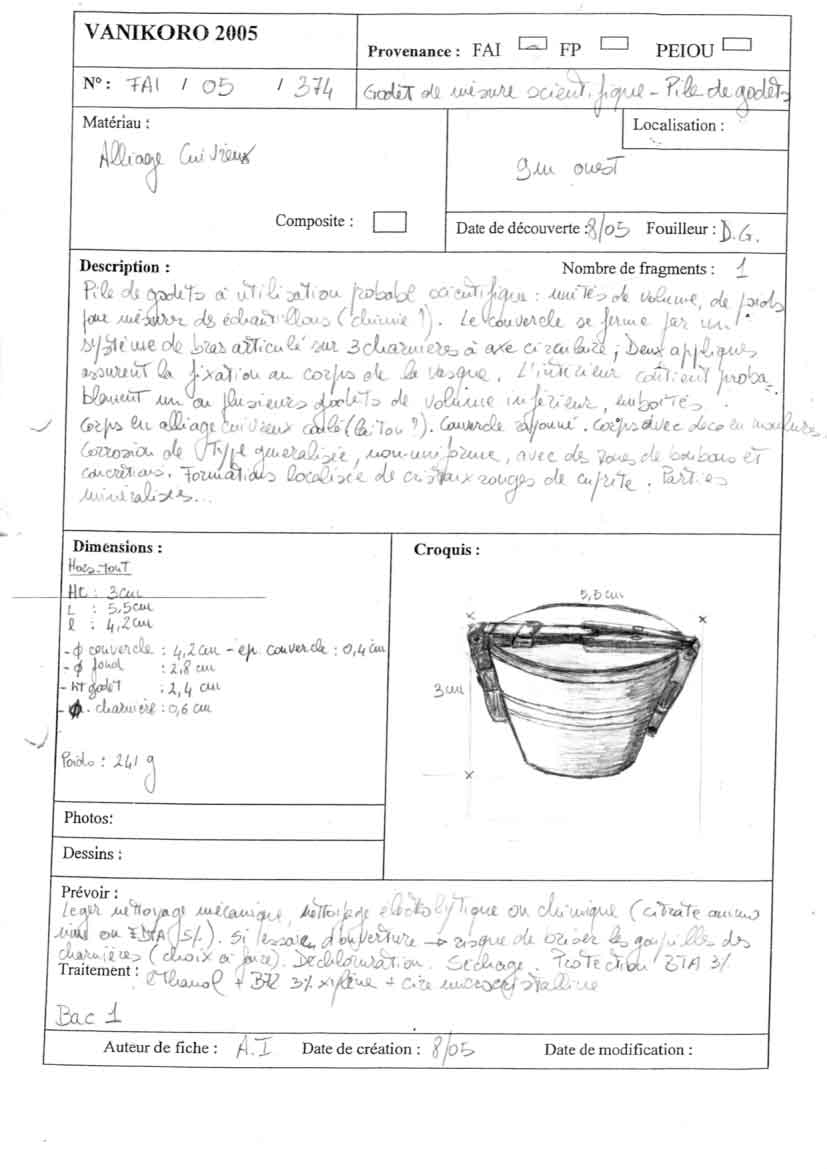 VANIKORO 2005
Provenance : FAI FP PEIOU
N° : FAI / 05 / 374
Godet de mesure scientifique - Pile de godets
Matériau :
Alliage Cuivreux
Composite :
Localisation :
9m ouest
Date de découverte : 8/05 Fouilleur : D.G.
Description : Nombre de fragments : 1
Pile de godets à utilisation probable scientifique : unités de volume, de poids
pour mesurer des échantillons (chimie ?). Le couvercle se ferme par un
système de bras articulé sur 3 charnières à axe circulaire ; Deux appliques
assurent la fixation au corps de la vasque. L'intérieur contient proba-
blement un ou plusieurs godets de volume inférieur, emboités.
Corps en alliage cuivreux coulé (laiton ?). Couvercle rayonné. Corps avec deco en moulures.
Corrosion de type generalisée, non-uniforme, avec des zones de et
concrétions. Formations localisée de cristaux rouges de cuprite. Parties
minéralisées...
Dimensions :
Hors-tout
Ht : 3cm
L : 5,5cm
l : 4,2cm
- ϕ couvercle : 4,2cm - ep. couvercle : 0,4 cm
- ϕ fond : 2,8 cm
- ht godet : 2,4 cm
- ϕ. charnière : 0,6 cm
Poids : 241 g
Croquis :
5,5 cm
3cm
Photos:
Dessins :
Prévoir :
Leger nettoyage mécanique, nettoyage électrolytique ou chimique (citrate ammo
nium ou EDTA 5%). Si d'ouverture → risque de briser les goupilles des
charnières (choix à faire). Dechloruration. Séchage. Protection BTA 3%
Traitement : éthanol + B72 3% xylène + cire microcrystalline
Bac 1
Auteur de fiche : A.I Date de création : 8/05 Date de modification :